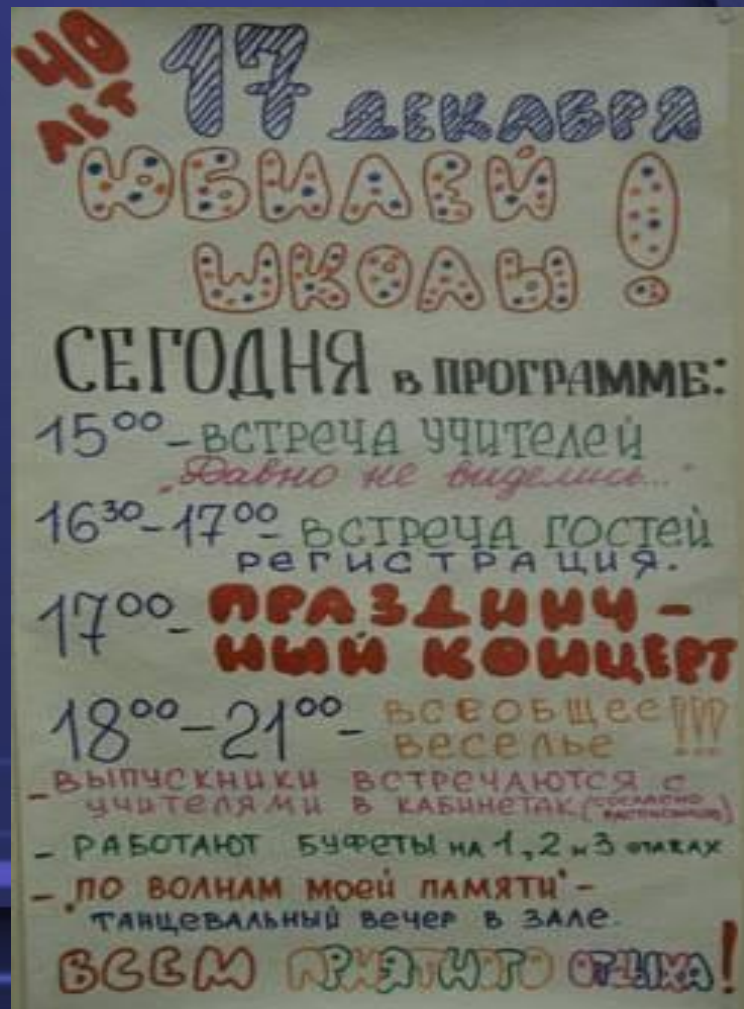 40
ЛЕТ
17 ДЕКАБРЯ
ЮБИЛЕЙ
ШКОЛЫ!
СЕГОДНЯ В ПРОГРАММЕ:
15⁰⁰ – ВСТРЕЧА УЧИТЕЛЕЙ
„Давно не виделись..."
16³⁰ – 17⁰⁰ – ВСТРЕЧА ГОСТЕЙ
РЕГИСТРАЦИЯ.
17⁰⁰ – ПРАЗДНИЧ –
НЫЙ КОНЦЕРТ
18⁰⁰ – 21⁰⁰ – ВСЕОБЩЕЕ
ВЕСЕЛЬЕ !!!
– ВЫПУСКНИКИ ВСТРЕЧАЮТСЯ С
УЧИТЕЛЯМИ В КАБИНЕТАХ (СОГЛАСНО
РАСПИСАНИЮ)
– РАБОТАЮТ БУФЕТЫ НА 1, 2 и 3 этажах
– „ПО ВОЛНАМ МОЕЙ ПАМЯТИ" –
ТАНЦЕВАЛЬНЫЙ ВЕЧЕР В ЗАЛЕ.
ВСЕМ ПРИЯТНОГО ОТДЫХА!